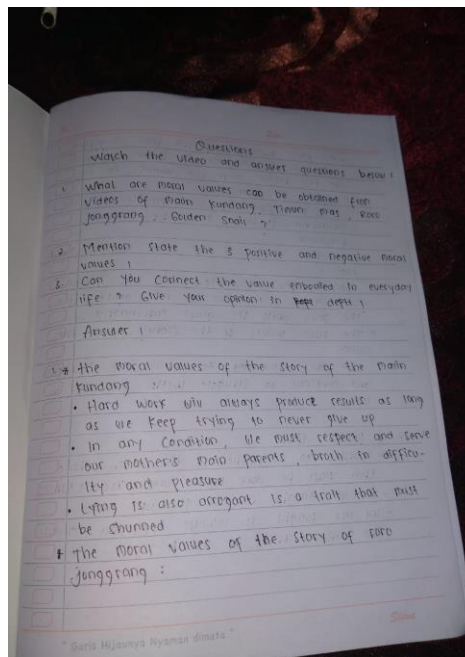 Questions
Watch the video and answer questions below!
1. What are moral values can be obtained from
videos of malin kundang, Timun mas, Roro
jonggrang, Golden Snail?
2. Mention state the 3 positive and negative moral
values!
3. Can you connect the value embodied in everyday
life? Give your opinion in depth!
Answer!
1. * the moral values of the story of the malin
kundang
• Hard work will always produce results as long
as we keep trying to never give up
• In any condition, we must respect and serve
our mother's main parents, broth in difficu-
lty and pleasure
• Lying is also arrogant is a trait that must
be shunned
* The moral values of the story of roro
jonggrang:
"Garis Hijaunya Nyaman dimata"